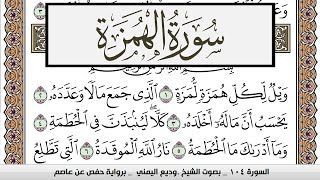 سُورَةُ الْهُمَزَةِ
وَيْلٌ لِّكُلِّ هُمَزَةٍ لُّمَزَةٍ ١ الَّذِي جَمَعَ مَالًا وَعَدَّدَهُ ٢
يَحْسَبُ أَنَّ مَالَهُ أَخْلَدَهُ ٣ كَلَّا لَيُنبَذَنَّ فِي الْحُطَمَةِ ٤
وَمَا أَدْرَاكَ مَا الْحُطَمَةُ ٥ نَارُ اللَّهِ الْمُوقَدَةُ ٦ الَّتِي تَطَّلِعُ
السورة ١٠٤ . بصوت الشيخ . وديع اليمني . برواية حفص عن عاصم